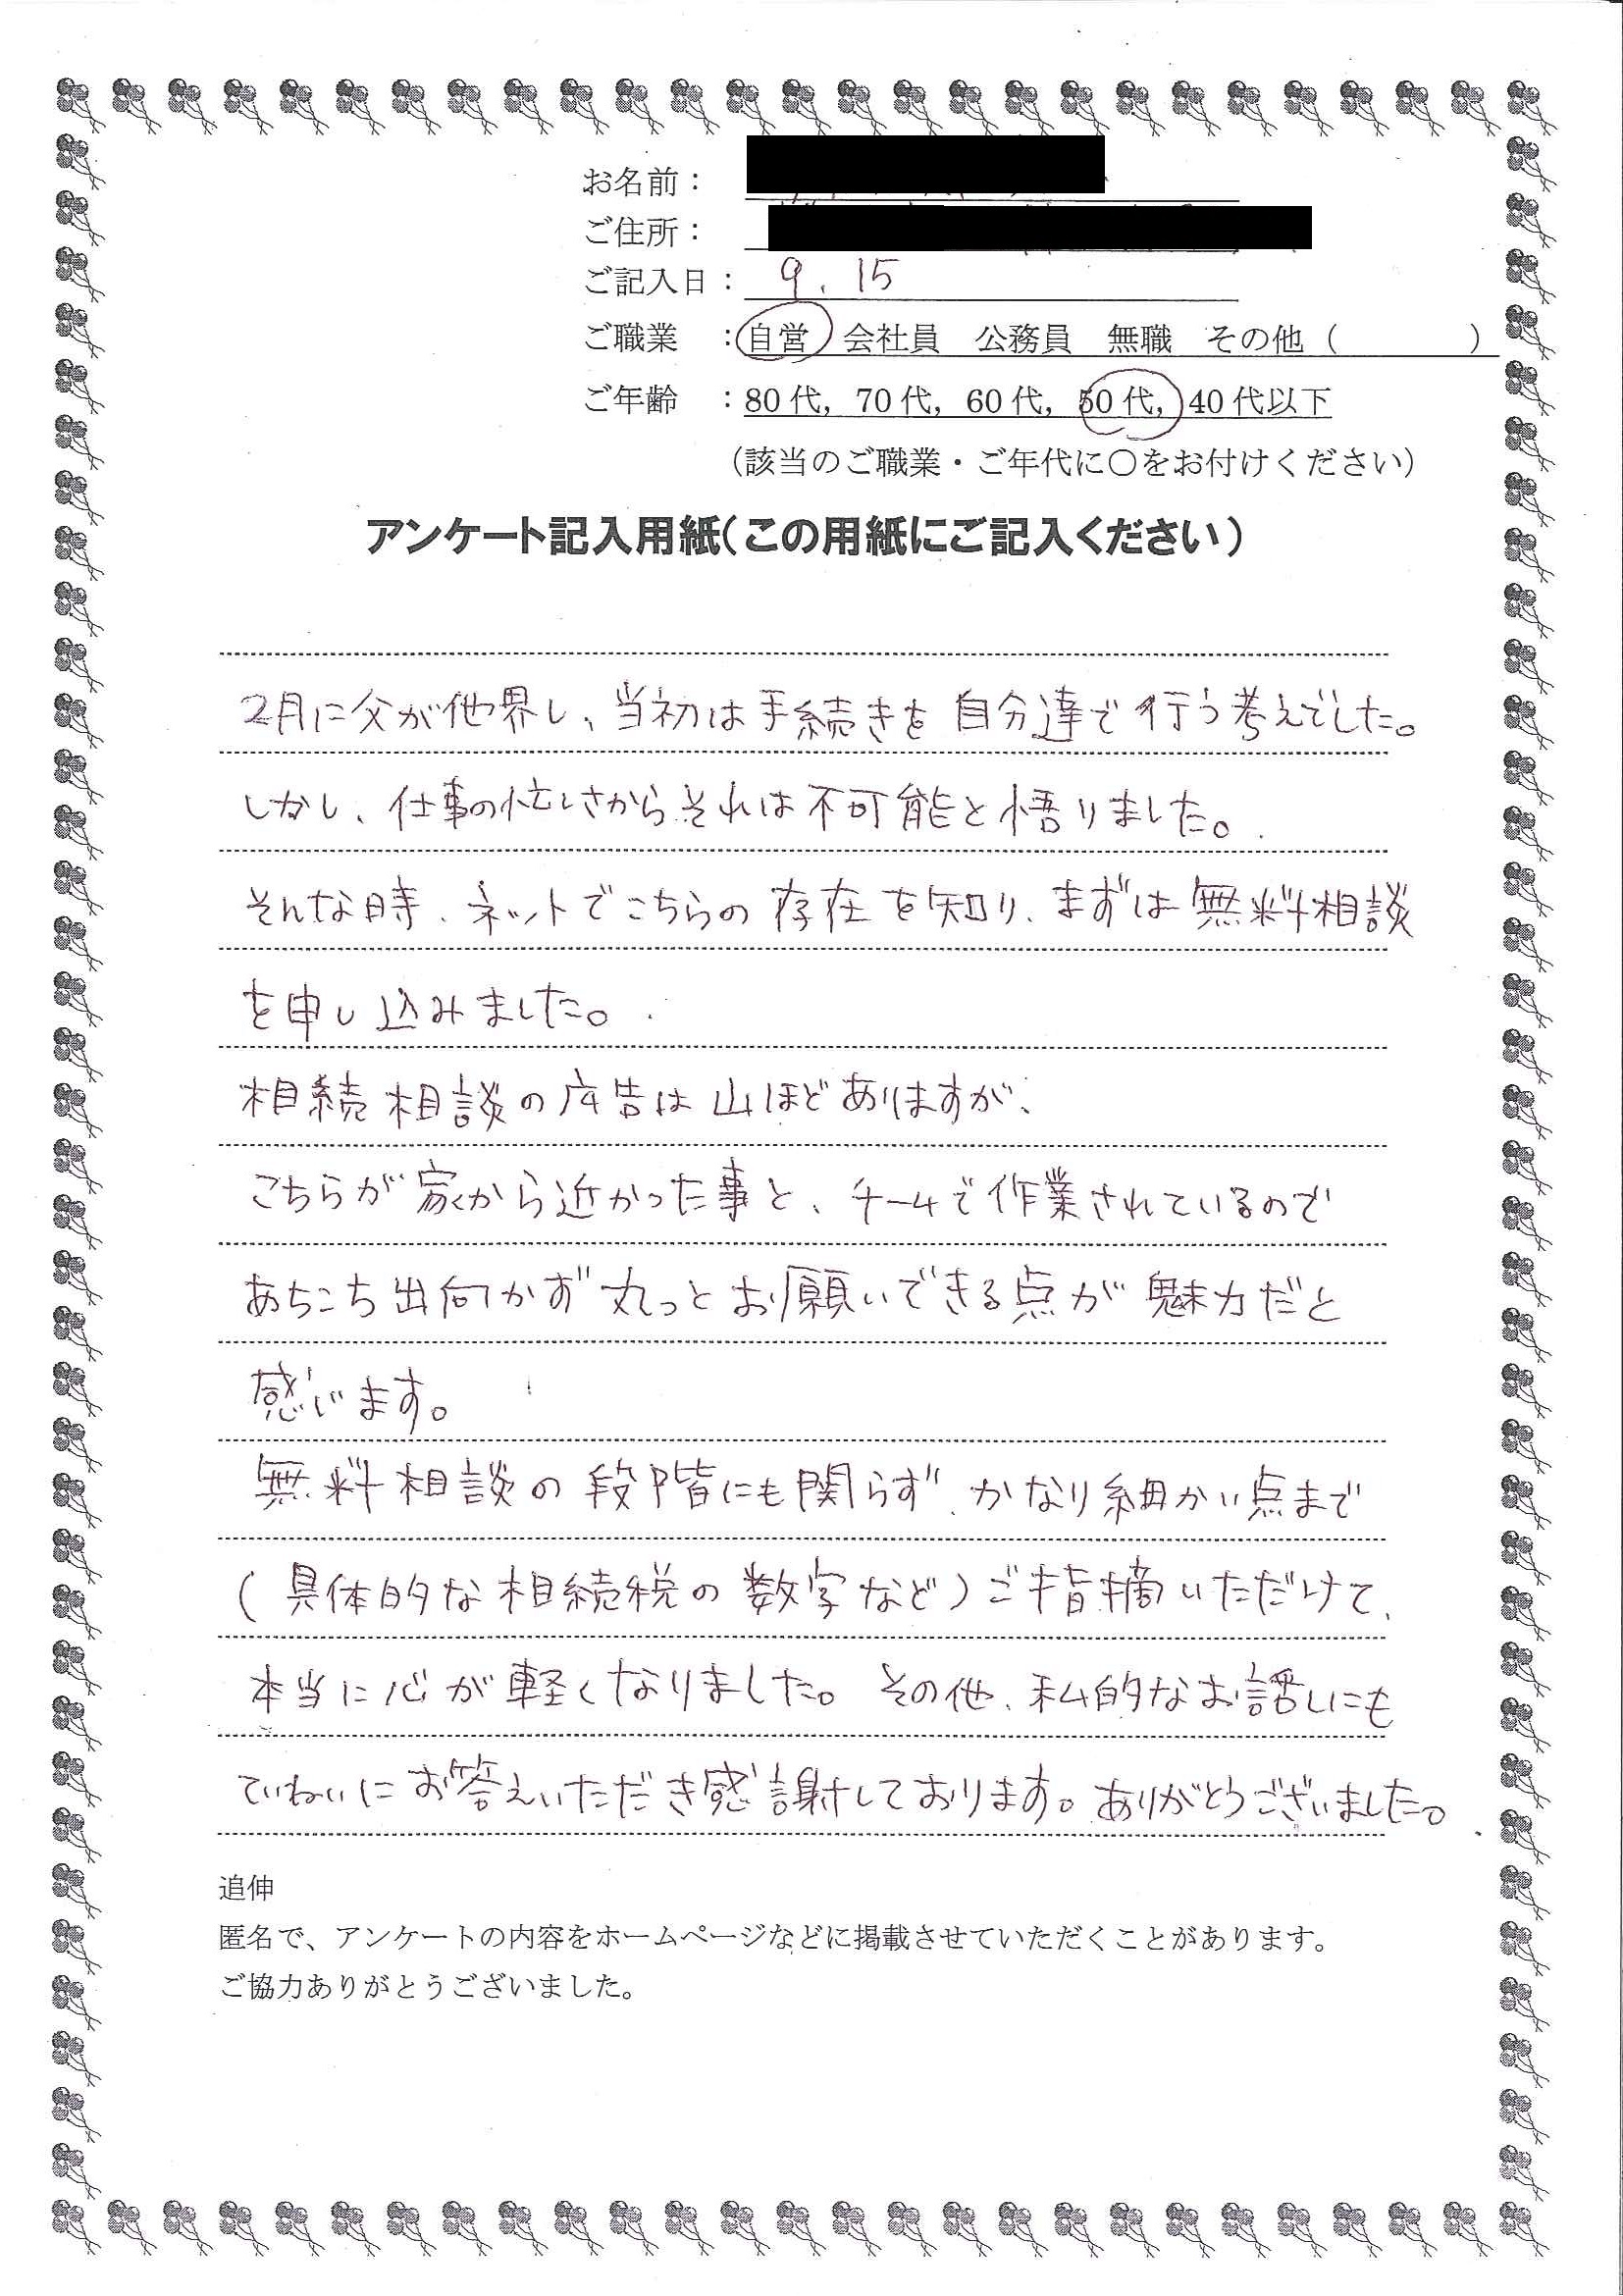 お名前：
ご住所：
ご記入日： 9. 15
ご職業　：自営　会社員　公務員　無職　その他（　　　　）
ご年齢　：80代，70代，60代，50代，40代以下
（該当のご職業・ご年代に〇をお付けください）
アンケート記入用紙（この用紙にご記入ください）
2月に父が他界し、当初は手続きを自分達で行う考えでした。
しかし、仕事の忙しさからそれは不可能と悟りました。
そんな時、ネットでこちらの存在を知り、まずは無料相談
を申し込みました。
相続相談の広告は山ほどありますが、
こちらが家から近かった事と、チームで作業されているので
あちこち出向かず丸っとお願いできる点が魅力だと
感じます。
無料相談の段階にも関らず、かなり細かい点まで
（具体的な相続税の数字など）ご指摘いただけて、
本当に心が軽くなりました。その他、私的なお話しにも
ていねいにお答えいただき感謝しております。ありがとうございました。
追伸
匿名で、アンケートの内容をホームページなどに掲載させていただくことがあります。
ご協力ありがとうございました。